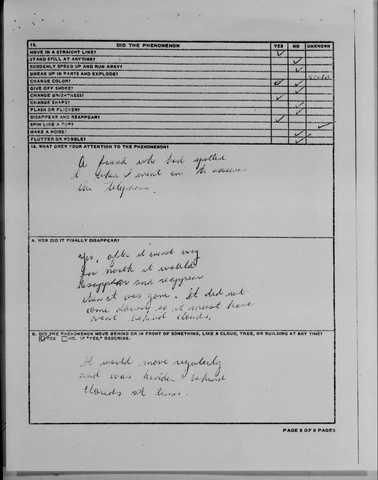 13. DID THE PHENOMENON YES NO UNKNOWN
MOVE IN A STRAIGHT LINE?
STAND STILL AT ANYTIME?
SUDDENLY SPEED UP AND RUN AWAY?
BREAK UP IN PARTS AND EXPLODE?
CHANGE COLOR?
GIVE OFF SMOKE?
CHANGE BRIGHTNESS?
CHANGE SHAPE?
FLASH OR FLICKER?
DISAPPEAR AND REAPPEAR?
SPIN LIKE A TOP?
MAKE A NOISE?
FLUTTER OR WOBBLE?
14. WHAT DREW YOUR ATTENTION TO THE PHENOMENON?
A friend who had spotted
it when I went on to answer
the telephone.
A. HOW DID IT FINALLY DISAPPEAR?
Yes, after it went way
far north it would
disappear and reappear
then it was gone. It did not
come down so it must have
went behind clouds.
B. DID THE PHENOMENON MOVE BEHIND OR IN FRONT OF SOMETHING, LIKE A CLOUD, TREE, OR BUILDING AT ANY TIME?
YES NO. IF "YES," DESCRIBE.
It would move regularly
and was hidden behind
clouds at times.
PAGE 5 OF 8 PAGES